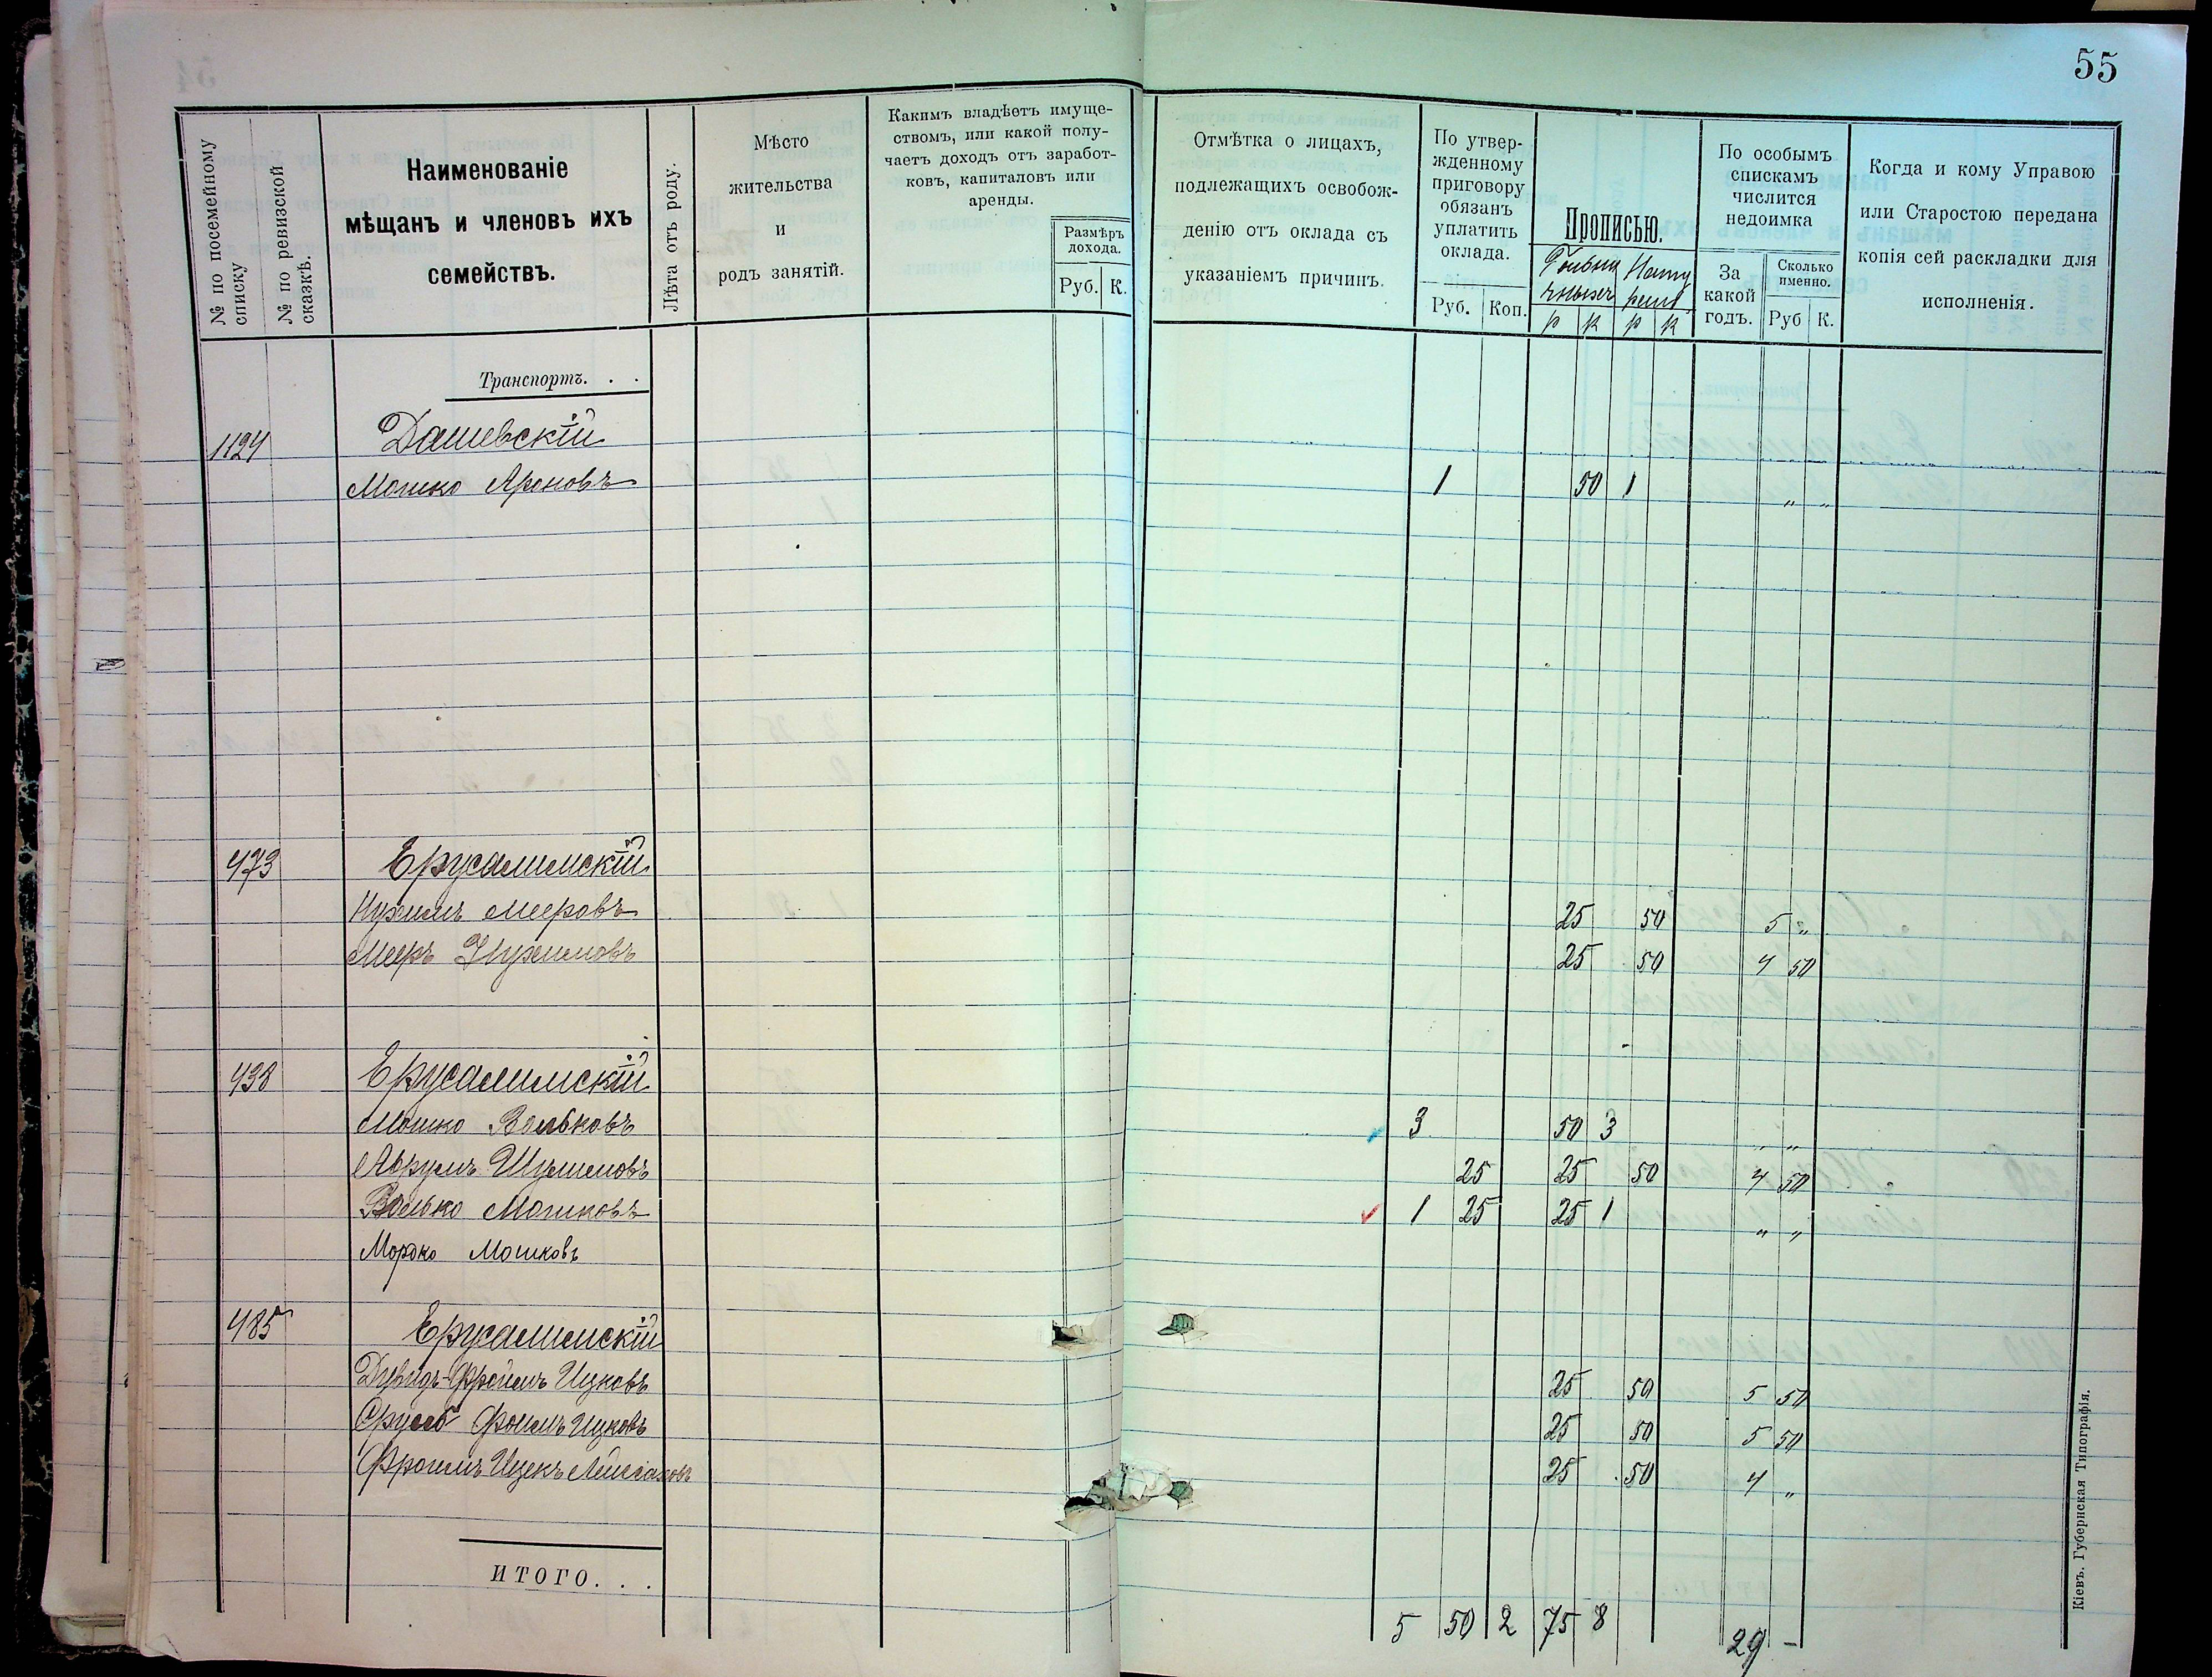 55
№ по посемейному списку
№ по ревизской сказкѣ.
Наименованіе
мѣщанъ и членовъ ихъ
семействъ.
Лѣта отъ роду.
Мѣсто
жительства
и
родъ занятій.
Какимъ владѣетъ имуще-
ствомъ, или какой полу-
чаетъ доходъ отъ заработ-
ковъ, капиталовъ или
аренды.
Размѣръ
дохода.
Руб. К.
Отмѣтка о лицахъ,
подлежащихъ освобож-
денію отъ оклада съ
указаніемъ причинъ.
По утвер-
жденному
приговору
обязанъ
уплатить
оклада.
Руб. Коп.
Прописью.
р к р к
По особымъ
спискамъ
числится
недоимка
За
какой
годъ.
Сколько
именно.
Руб К.
Когда и кому Управою
или Старостою передана
копія сей раскладки для
исполненія.
Транспортъ. . .
1124 Дашевскій
Мошко Ароновъ 1 50 1 „ „
473 Ерусалимскій
Нухимъ Мееровъ 25 50 5 „
Мееръ Нухимовъ 25 50 4 50
438 Ерусалимскій
Мошко Вольковъ 3 50 3 „ „
Аврумъ 25 25 50 4 50
Волько Мошковъ 1 25 25 1 „ „
Мордко Мошковъ
485 Ерусалимскій
Дувидъ-Фроимъ Ицковъ 25 50 5 50
Сруль Фроимъ Ицковъ 25 50 5 50
Фроимъ Ицекъ 25 50 4 „
ИТОГО. . .
5 50 2 75 8 29 –
Кіевъ. Губернская Типографія.